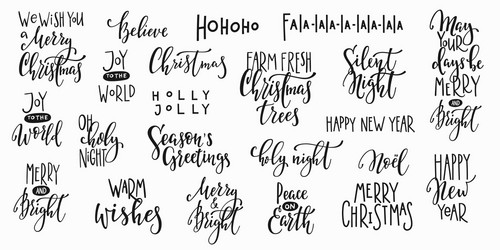 We Wish You
a Merry
Christmas
Believe
HoHoHo
FALA-LA-LA-LALA-LALA
May
Your
days be
MERRY
AND
Bright
JOY
TO THE
WORLD
Christmas
FARM FRESH
Christmas
trees
Silent
Night
JOY
TO THE
World
HOLLY
JOLLY
OH
holy
NIGHT
Season's
Greetings
HAPPY NEW YEAR
holy night
Noël
HAPPY
New
YEAR
MERRY
AND
Bright
WARM
wishes
Merry
&
Bright
Peace
ON
Earth
MERRY
CHRISTMAS